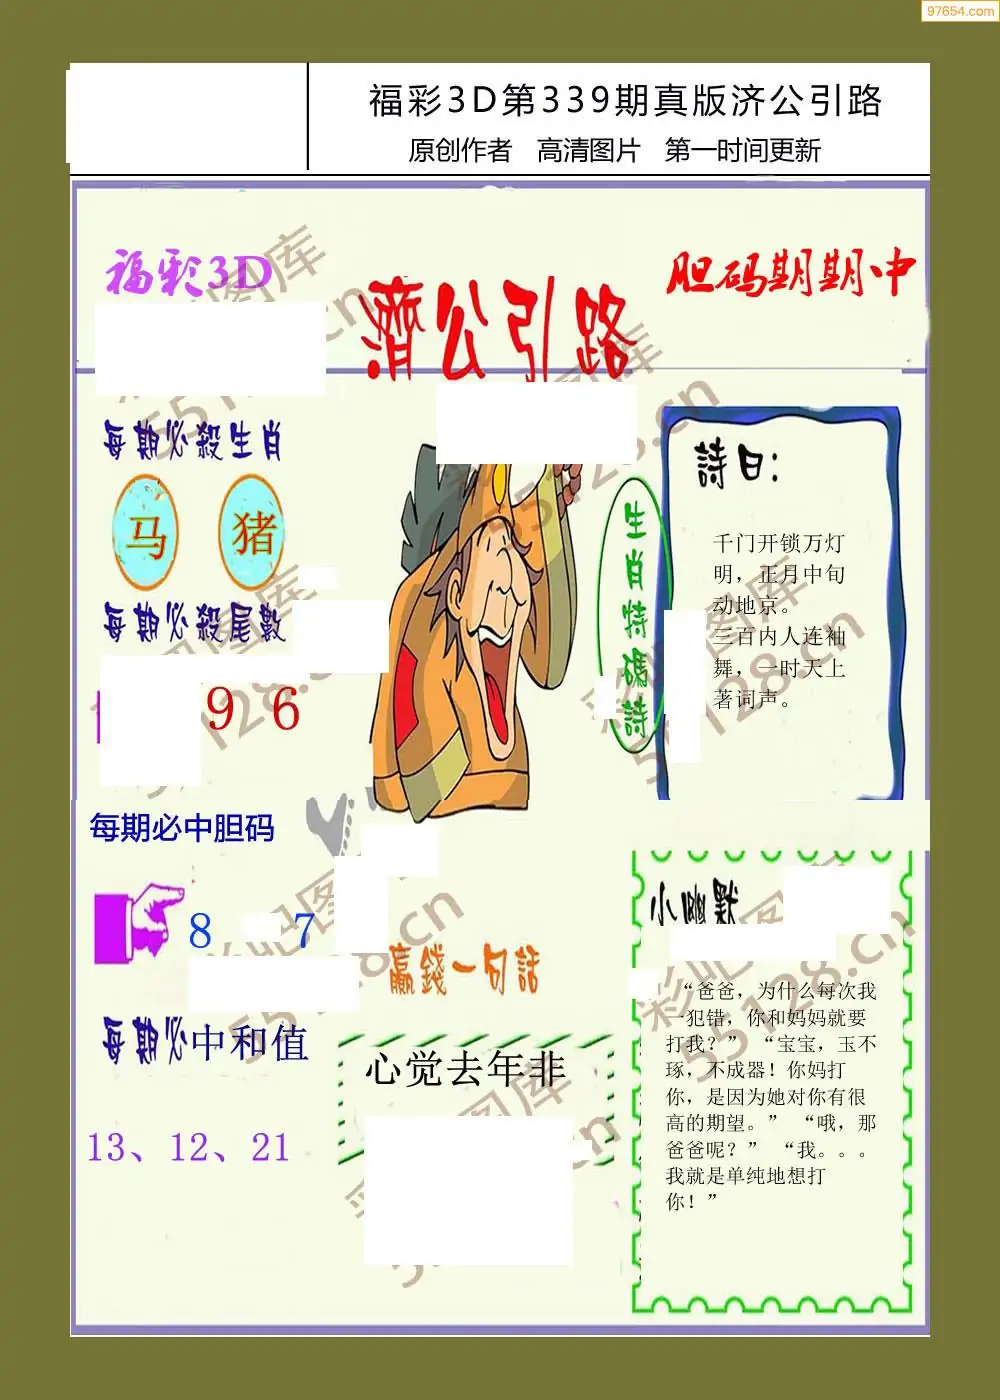 97654.com
福彩3D第339期真版济公引路
原创作者 高清图片 第一时间更新
福彩3D
胆码期期中
濟公引路
每期必殺生肖
马 猪
每期必殺尾數
9 6
生肖特碼詩
詩曰：
千门开锁万灯
明，正月中旬
动地京。
三百内人连袖
舞，一时天上
著词声。
每期必中胆码
8 7
每期必中和值
13、12、21
贏錢一句話
心觉去年非
小幽默
“爸爸，为什么每次我
一犯错，你和妈妈就要
打我？” “宝宝，玉不
琢，不成器！你妈打
你，是因为她对你有很
高的期望。” “哦，那
爸爸呢？” “我。。。
我就是单纯地想打
你！”
彩吧图库
55128.cn